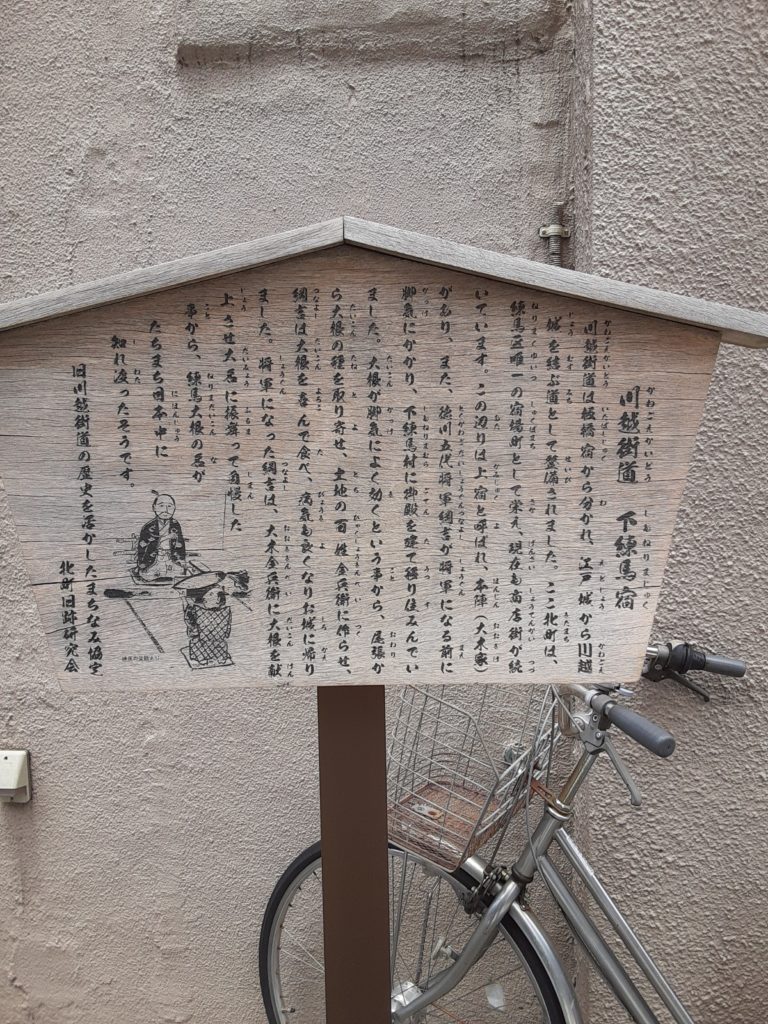 川越街道　下練馬宿
川越街道は板橋宿から分かれ、江戸城から川越
城を結ぶ道として整備されました。ここ北町は、
練馬区唯一の宿場町として栄え、現在も商店街が続
いています。この辺りは上宿と呼ばれ、本陣（大木家）
があり、また、徳川五代将軍綱吉が将軍になる前に
脚気にかかり、下練馬村に御殿を建て移り住んでい
ました。大根が脚気によく効くという事から、尾張か
ら大根の種を取り寄せ、土地の百姓金兵衛に作らせ、
綱吉は大根を喜んで食べ、病気も良くなりお城に帰り
ました。将軍になった綱吉は、大木金兵衛に大根を献
上させ大名に振舞って自慢した
事から、練馬大根の名が
たちまち日本中に
知れ渡ったそうです。
旧川越街道の歴史を活かしたまちなみ協定
北町旧跡研究会